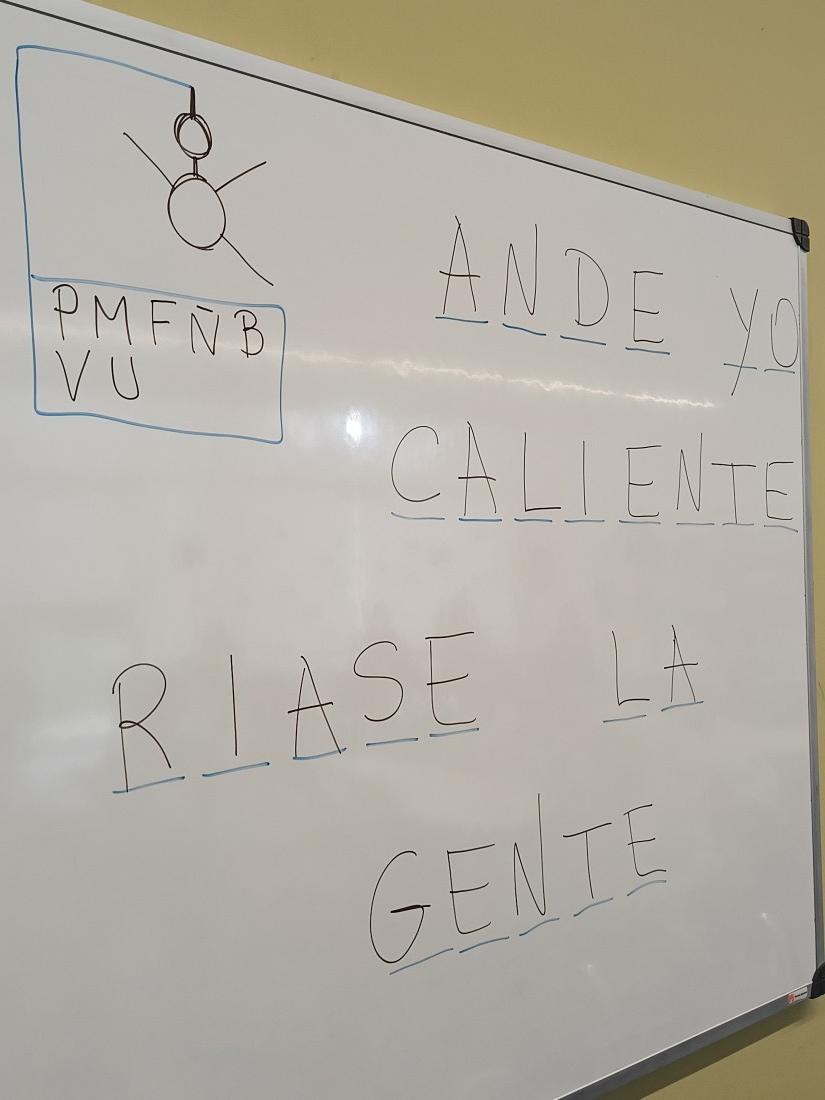 PMFÑB
VU
ANDE YO
CALIENTE
RIASE LA
GENTE